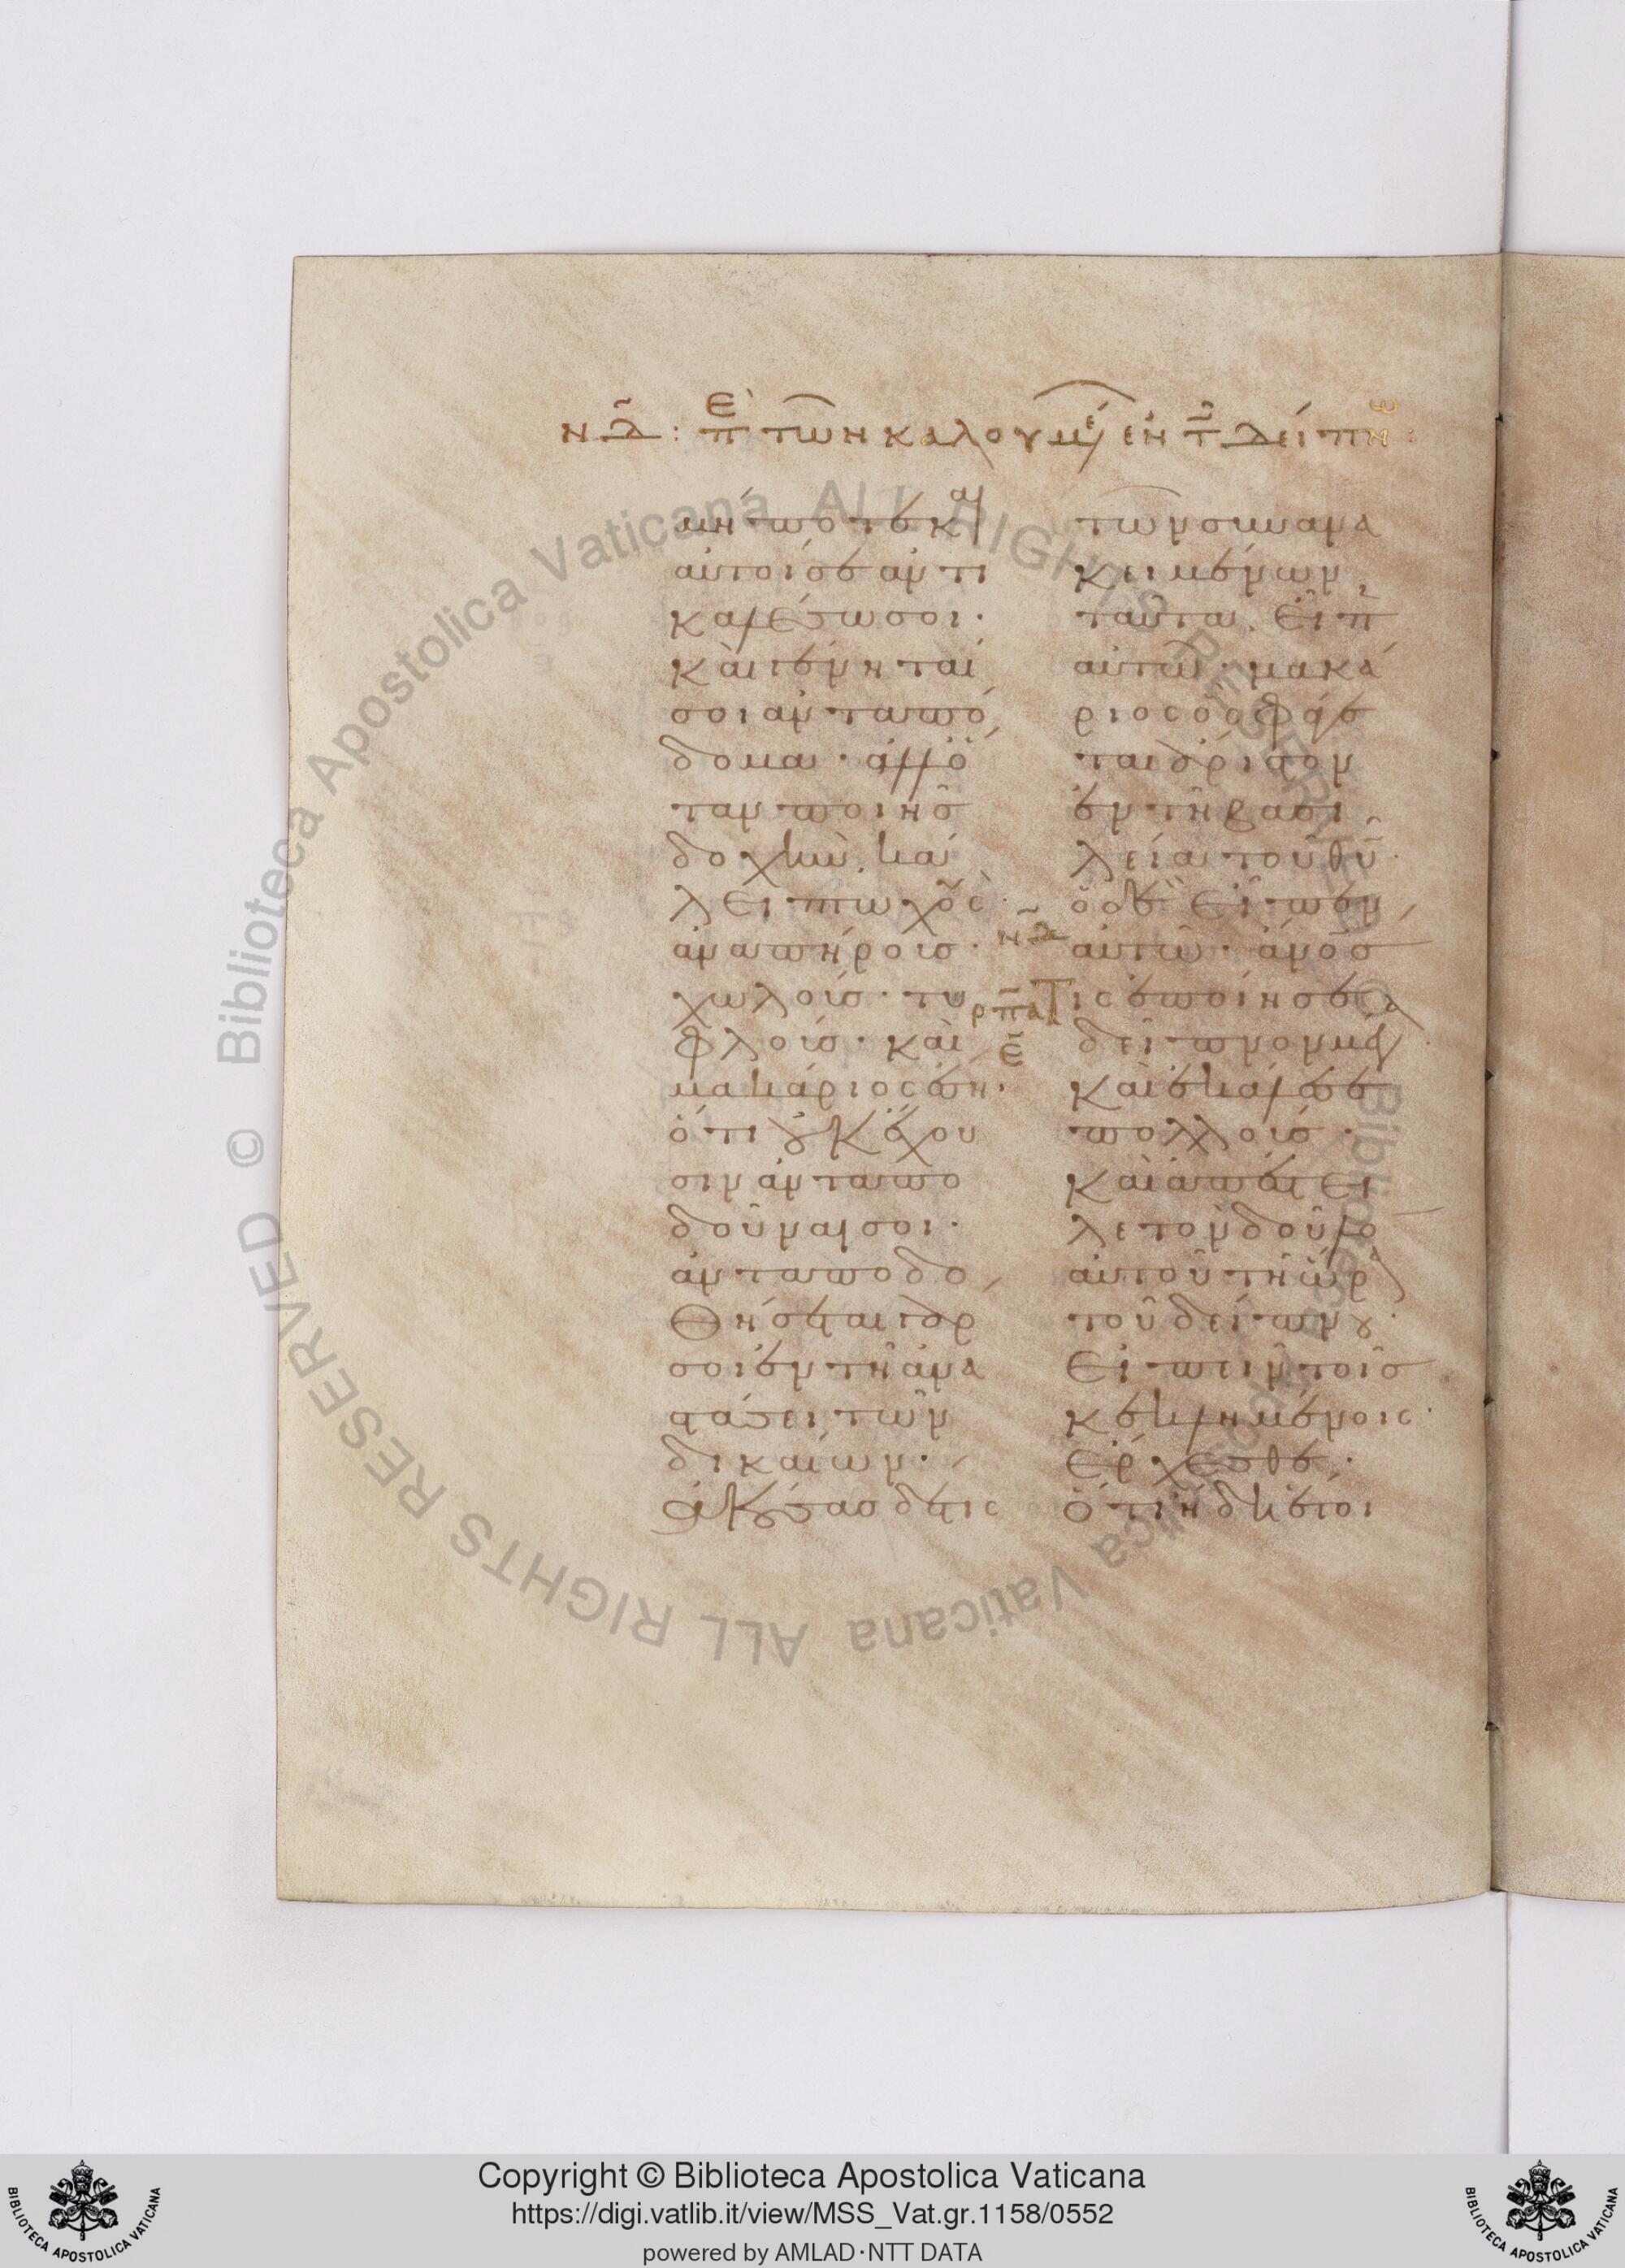 νδ: περὶ τῶν καλουμέ ἐν τῷ δείπνω:
μήποτε καὶ
αὐτοί σε ἀντι
καλέσωσι·
καὶ γένηταί
σοι ἀνταπό
δομα· ἀλλ ὅ
ταν ποιῆς
δοχὴν, κά
λει πτωχοὺς·
ἀναπήροις·
χωλοίς· τυ
φλοίς· καὶ
μακάριος ἔση·
ὅτι οὐκ ἔχου
σιν ἀνταπο
δοῦναί σοι·
ἀνταποδο
θήσεται γάρ
σοι ἐν τῆ ἀνα
στάσει τῶν
δικαίων·
Ἀκούσας δέ τις
τῶν συνανα
κειμένων
ταῦτα, εἶπ
αὐτῶ· μακά
ριος ὃς φάγε
ται ἄριστον
ἐν τῆ βασι
λεία τοῦ θυ·
ὁ δὲ εἶπεν
νδ
αὐτῶ· ἄνος
ρπα
Τις ἐποίησε
ε
δεῖπνον μέγα
καὶ ἐκάλεσε
πολλοίς·
καὶ ἀπέστει
λε τὸν δοῦλο
αὐτοῦ τῆ ὥρα
τοῦ δείπνου·
εἰπεῖν τοῖς
κεκλημένοις·
ἔρχεσθε·
ὅτι ἤδη ἕτοι
Copyright © Biblioteca Apostolica Vaticana
https://digi.vatlib.it/view/MSS_Vat.gr.1158/0552
powered by AMLAD·NTT DATA
BIBLIOTECA APOSTOLICA VATICANA
BIBLIOTECA APOSTOLICA VATICANA
© Biblioteca Apostolica Vaticana ALL RIGHTS RESERVED
© Biblioteca Apostolica Vaticana ALL RIGHTS RESERVED